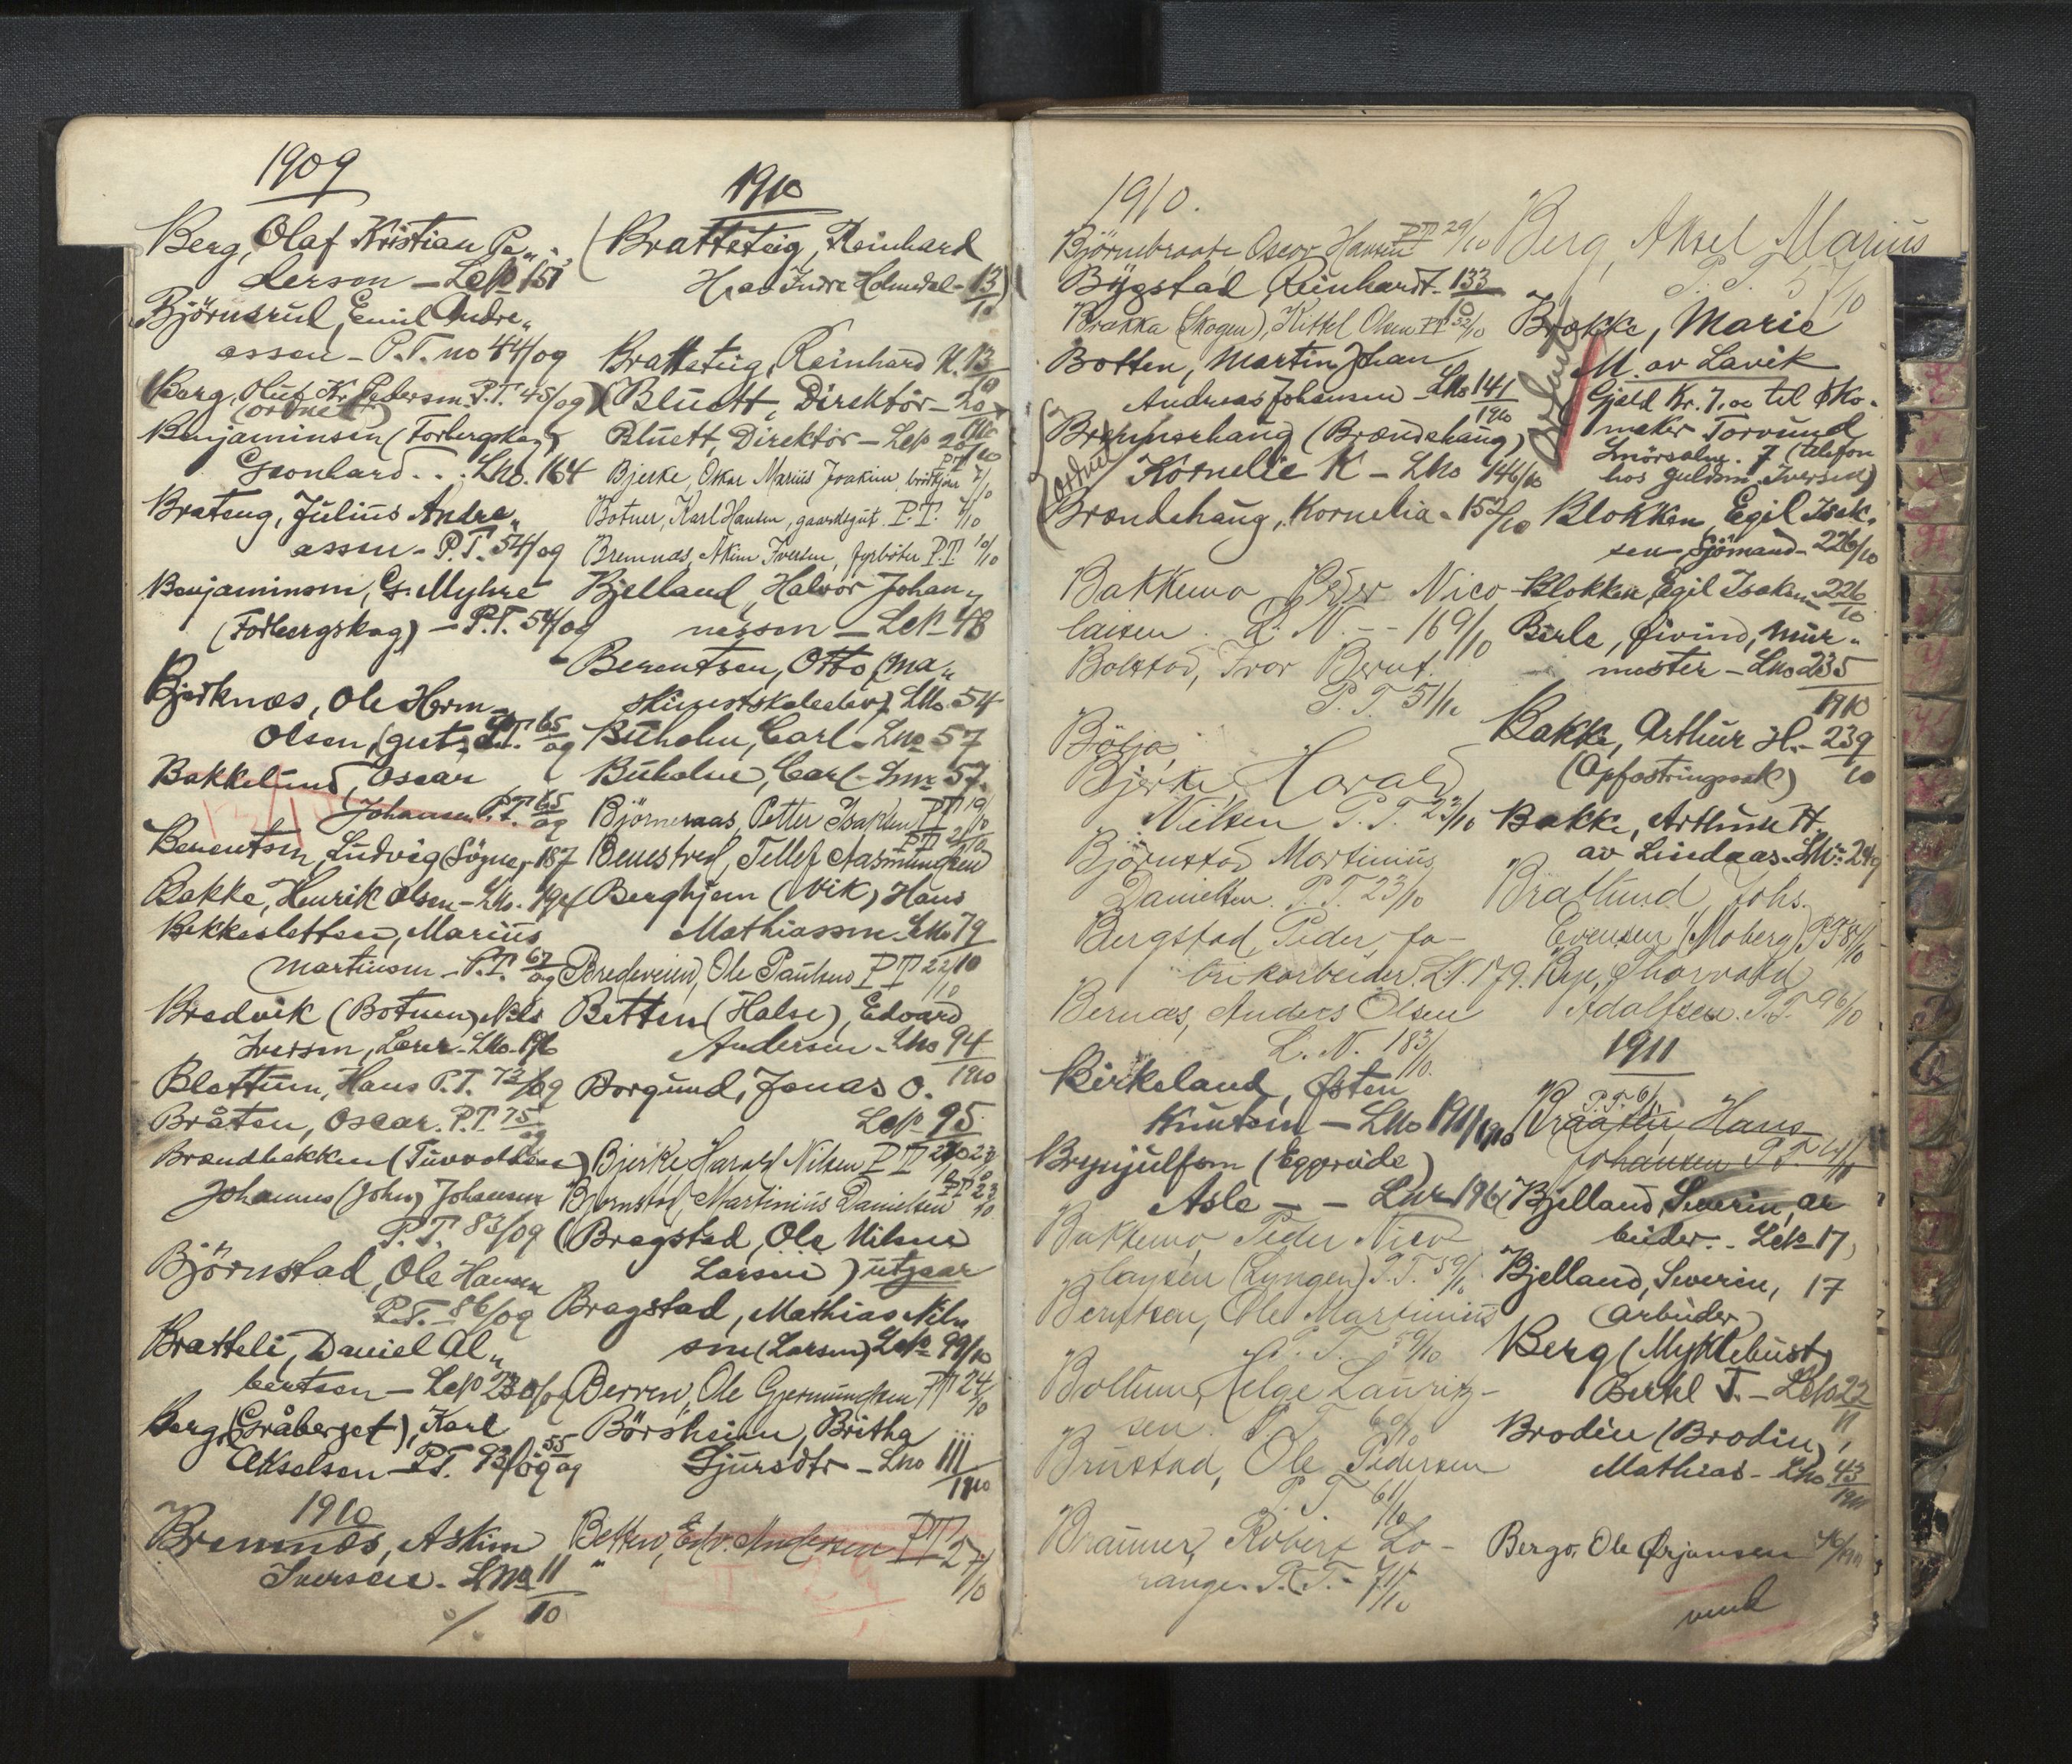 1909
Berg, Olaf Kristian Pe„
derson – Lno 151
Björnsrud, Emil Andre„
assen – P.T. no 44/09
(Berg, Oluf Kr. Pedersen P.T. 45/09)
(ordnet)
Benjaminsen (Forbergskog)
Leonhard . . . Lno. 164
Brateng, Julius Andre„
assen – P.T. 54/09
Benjaminsen, G. Myhre
(Fodbergskog) – P.T. 54/09
Bjerknæs, Ole Herm.
Olsen, (gut) P.T. 65/09
Bakkelund, Oscar
Johansen P.T. 65/09
Berentsen, Ludvig Sögne, 187
Bakke, Henrik Olsen – Lno. 194
Bekkesletten, Marius
Martinsen – P.T. 67/09
Bredvik (Botnen) Nils
Iversen, Lærer – Lno. 196
Blettum, Hans P.T. 73/09
Bråten, Oscar. P.T. 75/09
Brændbekken (Tuvvolden)
Johannes (John) Johansen
P.T. 83/09
Björnstad, Ole Hansen
P.T. – 86/09
Bratteli, Daniel Al„
bertsen – Lno 230/09
Berg (Gråberget), Karl
Akselsen – P.T. 93/09 55/09
1910
Bremnes, Askim
Iversen. Lno 11/10
1910
(Bratteteig, Reinhard
H. av Indre Holmedal – 13/10)
Bratteteig, Reinhard H. 13/10
(Bluett, Direktör – 20/1910)
Bluett, Direktör – Lno 20/10
Bjerke, Oskar Marius Joakim, P.T. 7/10
Botner, Karl Hansen, gaardsgut. P.T. 9/10
Bremnæs, Askim Iversen, fyrböter P.T. 10/10
Bjelland, Halvor Johan„
nessen – Lno 48
Berentsen, Otto (ma„
Lno. 54
Buholm, Carl – Lno 57
Buholm, Carl – Lnr 57.
Björneraas, Petter Isaksen P.T. 19/10
Benestred, Tellef Aasmundsen P.T. 21/10
Berghjem (Vik) Hans
Mathiassen – Lno 79
Bredeveien, Ole Paulsen P.T. 22/10
Betten (Halse), Edvard
Andersen – Lno 94/1910
Borgund, Jonas O.
Lno 95
Bjerke Harald Nilsen P.T. 23/10
Bjørnstad, Martinius Danielsen P.T. 23/10
(Bragstad, Ole Nilsen
Larsen) utgaar
Bragstad, Mathias Nils„
sen (Larsen) Lno 99/10
Berven, Ole Gjermundsen P.T. 24/10
Börsheim, Britha
Sjursdtr – Lno 111/1910
Betten, Edv. Andersen P.T. 27/10
1910.
Björnebraate, Oscar Hansen P.T. 29/10
Bygstad, Reinhardt – 133/10
Brakka (Skogen), Kittel Olsen P.T. 32/10
Botten, Martin Johan
Andreas Johansen – Lno 141/1910
Brennschaug (Brændehaug)
ordnet
Kornelie K – Lno 146/10
Brændehaug, Kornelia – 152/10
Bakkemo Peder Nico
laisen. L. N. – – 169/10
Bolstad, Ivar Bernt.
P. T. 51/10
Böljo,
Bjerke, Harald
Nilsen P. T. 23/10
Björnstad Martinius
Danielsen. P. T. 23/10
Bergstad, Peder, fa–
brikarbeider. L.N. 179.
Bernæs, Anders Olsen
L. N. 183/10.
Birkeland, Østen
Knutsen – Lno 191/1910
Brynjulfsen (Eggereide)
Asle – – Lnr 196
Bakkemo, Peder Nico
laysen (Lyngen) P.T. 59/10
Berntsen, Ole Martinius
P. T. 59/10
Boltum, Helge Lauritz–
sen. P. T. 60/10
Brustad, Ole Pedersen
P. T. 61/10
Brauner, Robert Lo–
range. P. T. – 71/10
Berg, Aksel Marius
P. T. 57/10
Brokke, Marie
M. av Lavik
Gjeld Kr. 7,00 til sko„
maker Torvund
Smörsalm. 7 (telefon
hos guldsm. Iversen)
Blokken, Egil Isak„
sen sjömand – 226/10
Blokken, Egil Isaksen 226/10
Berle, Øivind, mur„
mester – Lno 235/1910
Bakke, Arthur H. – 239/10
(Opfostringssak)
Bakke, Arthur H.
av Lindaas. Lnr 249
Bratlund, Johs.
Evensen (Moberg) P.T. 84/10
Bye, Thorvald
Adolfsen. P.T. 96/10
1911
P.T. 6/11
Braaten, Hans
Johansen P.T. 4/11
Bjelland, Severin, ar
beider. – Lno 17)
Bjelland, Severin, 17
(arbeider)
Berg (Myklebust)
Bertel T. – Lno 22/11
Brodin (Brodin),
Mathias – Lno 43/1911
Bergo, Ole Ørjansen 46/1911
vend